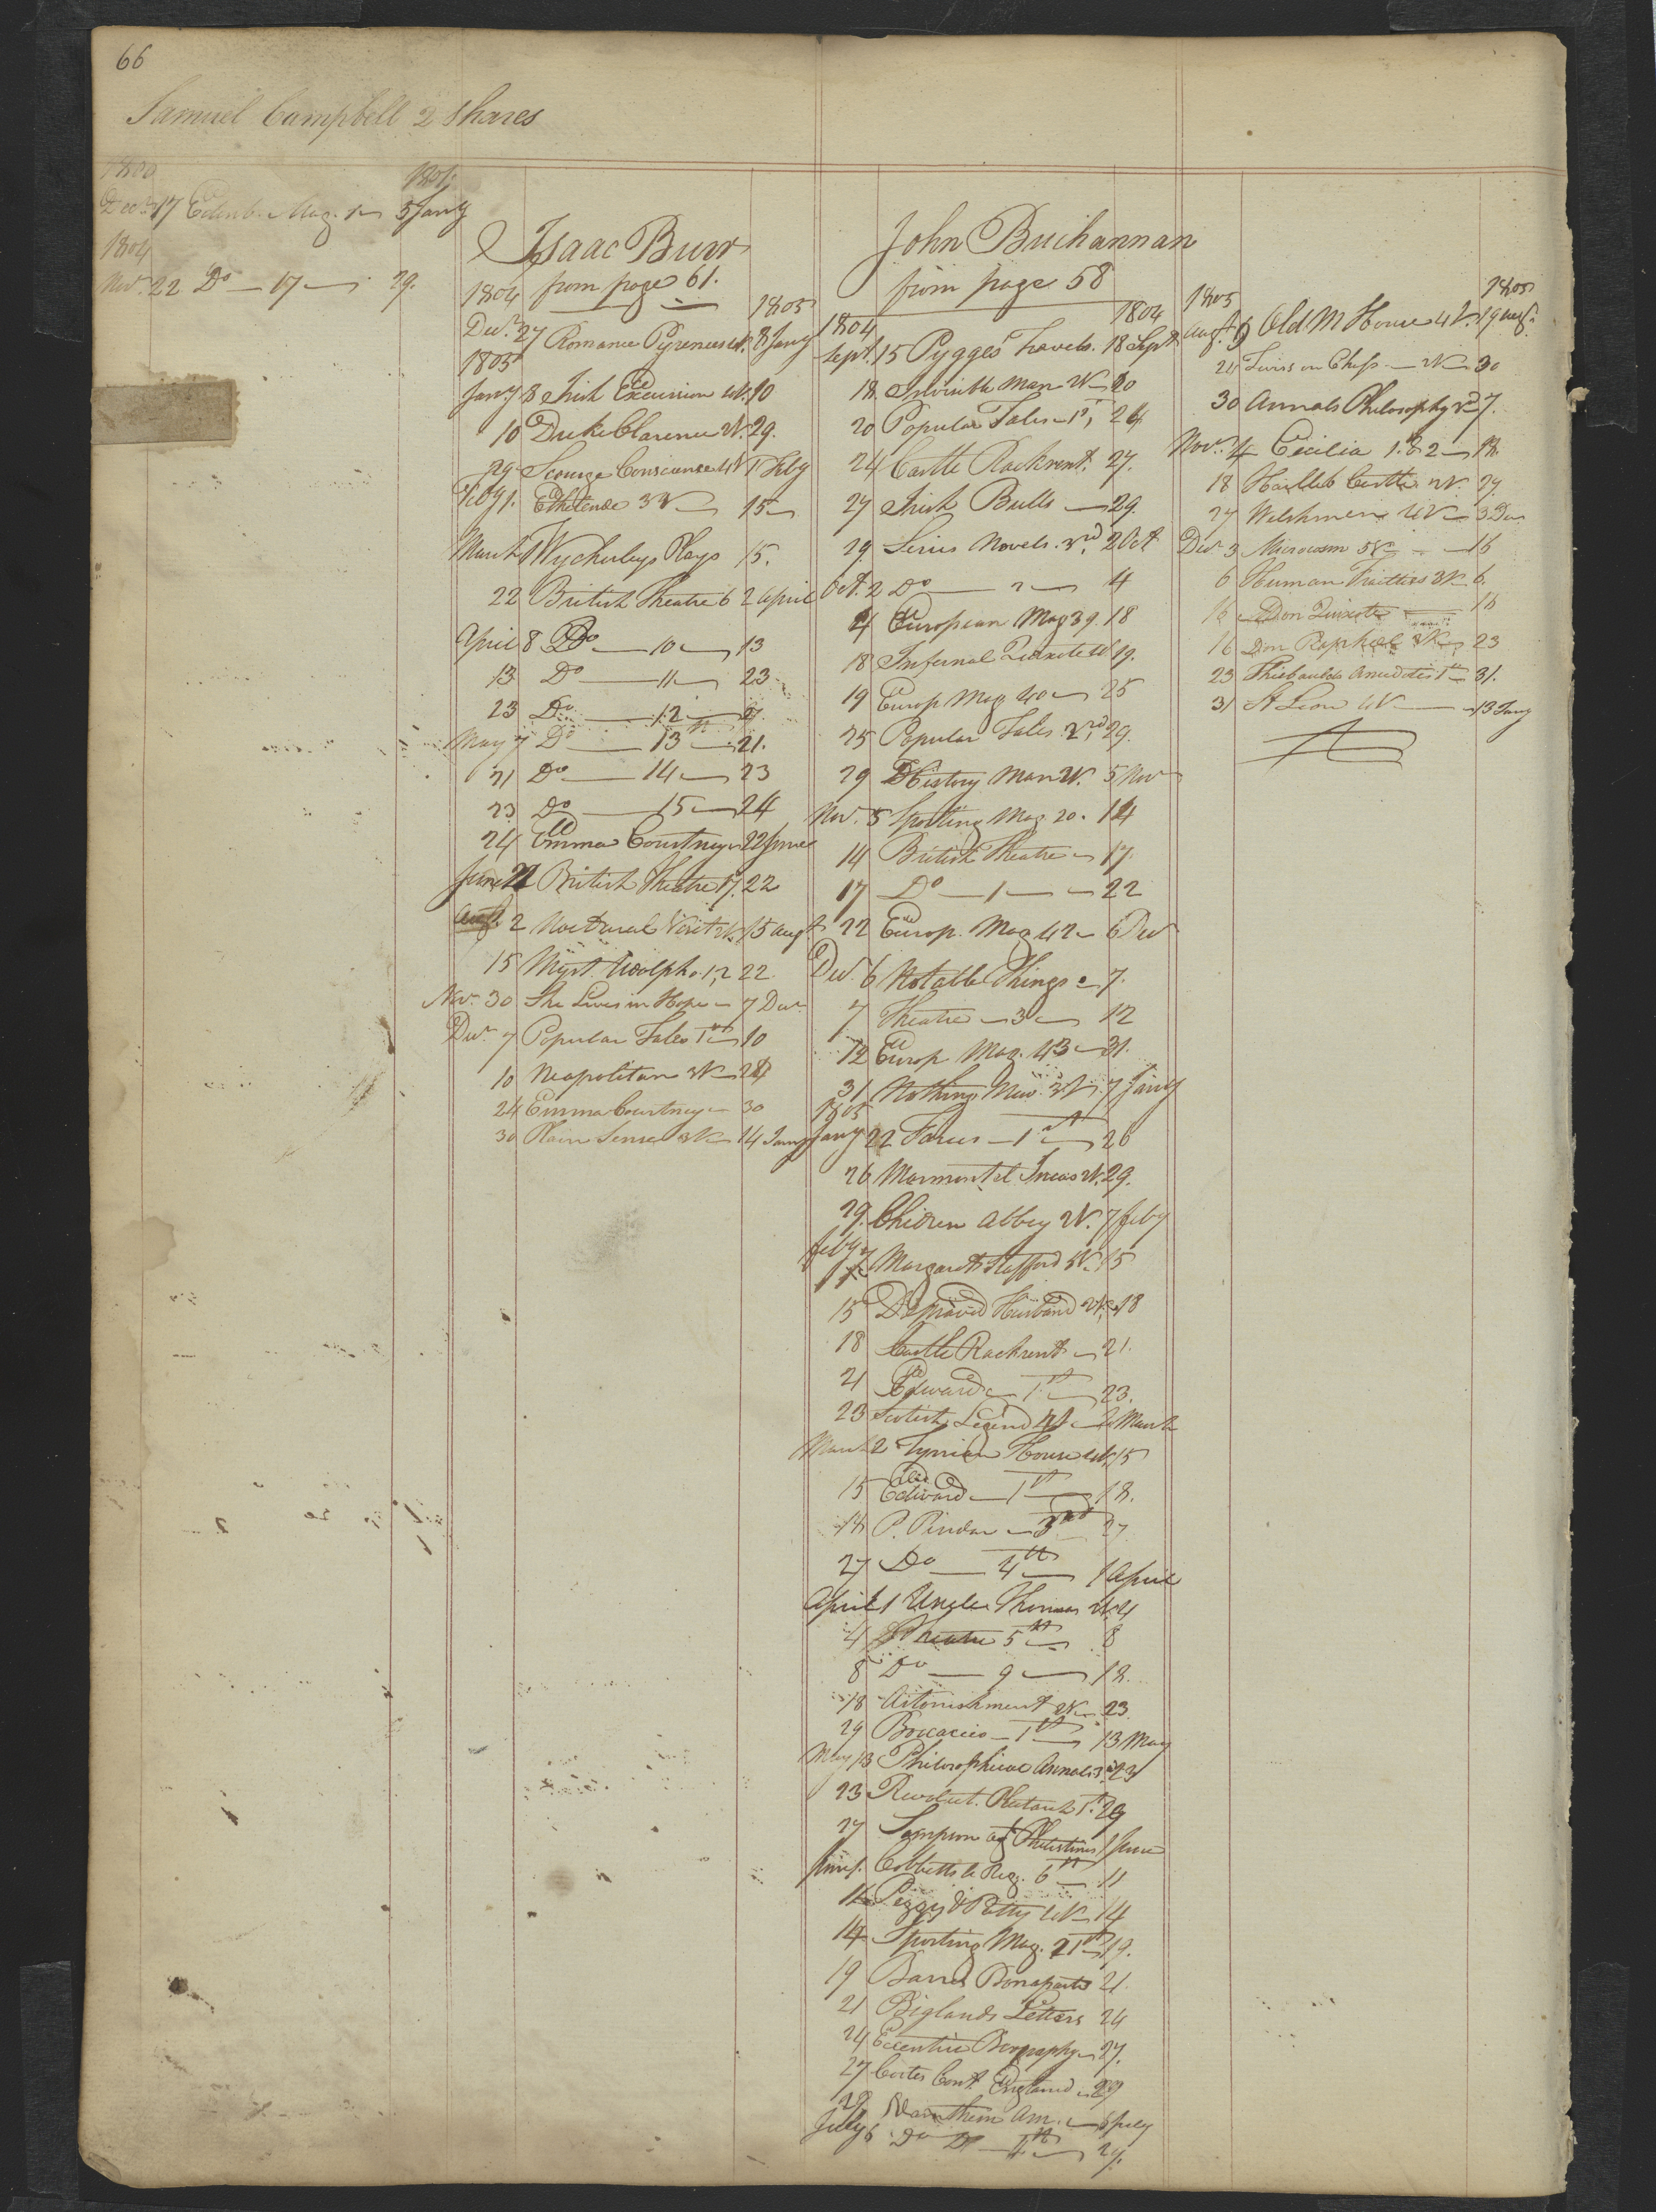 66
Samuel Campbell 2 Shares
1800
1801
Decr. 17 Edinb. Mag. 1 5 Jany
1804
Novr. 22 Do 17 29.
Isaac Burr
from page 61.
1804
1805
Decr. 27 Romance Pyrenees 4V. 8 Jany
1805
Jany 8 Irish Excursion 4V. 10
10 Duke Clarence 2V. 29.
29 Scourge Conscience 4V 1 Feby
Feby 1. Ethelinde 3V 15
March 1 Wycherleys Plays 15.
22 British Theatre 6 2 April
April 8 Do 10 13
13 Do 11 23
23 Do 12
May 7 Do 13th 21.
21 Do 14 23
23 Do 15 24
24 Emma Courtney 22 June
June 22 British Theatre 17. 22
Augt. 2 Nocturnal Visit 2V. 15 Augt
15 Myst. Udolpho 1, 2 22
Novr. 30 She Lives in Hope 7 Decr.
Decr. 7 Popular Tales 1st 10
10 Neapolitan 3V 24
24 Emma Courtney 30
30 Plain Sense 3V 14 Jany
John Buchannan
from page 58
1804
1804
Sept. 15 Pygges Travels. 18 Sept
18 Invisible Man 2V 20
20 Popular Tales 1st, 24
24 Castle Rackrent. 27.
27 Irish Bulls 29.
29. Series Novels. 3rd, 2 Oct
Oct. 2 Do 2 4
4 European Mag 39. 18
18 Infernal Quixote 4V 19.
19 Europ Mag 40 25
25 Popular Tales. 2nd, 29.
29 History Man 2V. 5 Nov
Nov. 5 Sporting Mag 20. 14
14 British Theatre 17.
17 Do 1 22
22 Europ. Mag 42 6 Decr
Decr. 6 Notable Things 7.
7 Theatre 3 12
12 Europ Mag. 43 31.
31 Nothing New 3V. 7 Jany
1805
Jany 22 Farces 1st 26
26 Marmontel Incas 2V. 29.
29. Children Abbey 2V. 7 Feby
Feby 7 Margaret Stafford 5V. 15
15 Depraved Husband 2V. 18
18 Castle Rackrent 21.
21 Edward 1st 23.
23 Scotish Legend 4V 2 March
March 2 Tynian House 4V. 15
15 Edward 1st 18.
18 P. Pindar 3rd 27
27 Do 4th 1 April
April 1 Uncle Thomas 2V. 4
4 Theatre 5th 8
8 Do 9 18.
18 Astonishment 2V 23
29 Boccacio 1st 13 May
May 13 Philosophical Annals 3d 23
23 Revolut. Plutarch 1st 29
27 Sampson agt Philistines 1 June
June 1. Cobbetts Reg. 6th 11
Peggy & Patty 4V 14
14 Sporting Mag. 21st 19.
19 Barres Bonaparte 21.
21 Biglands Letters 24
24 Eccentric Biography 27.
27 Cortes Cont. England 29
29 Do Am. July
July 6 Do Do 4th 29.
1805
1805
Augt. 9 Old M House 4V. 19 Augt.
21 Twiss on Chess 2V 30
30 Annals Philosophy 2nd 7.
Nov. 4 Cecilia 1. & 2 18.
18 Castle 2V. 27.
27 Welshmen 4V 3 Decr
Decr. 3 Microcosm 5V 16
6 Human Frailties 3V 6.
16 Don Quixote 16
16 Don Raphael 3V 23
23 Thiebaults Anecdotes 1st 31.
31 St Leon 4V 13 Jany